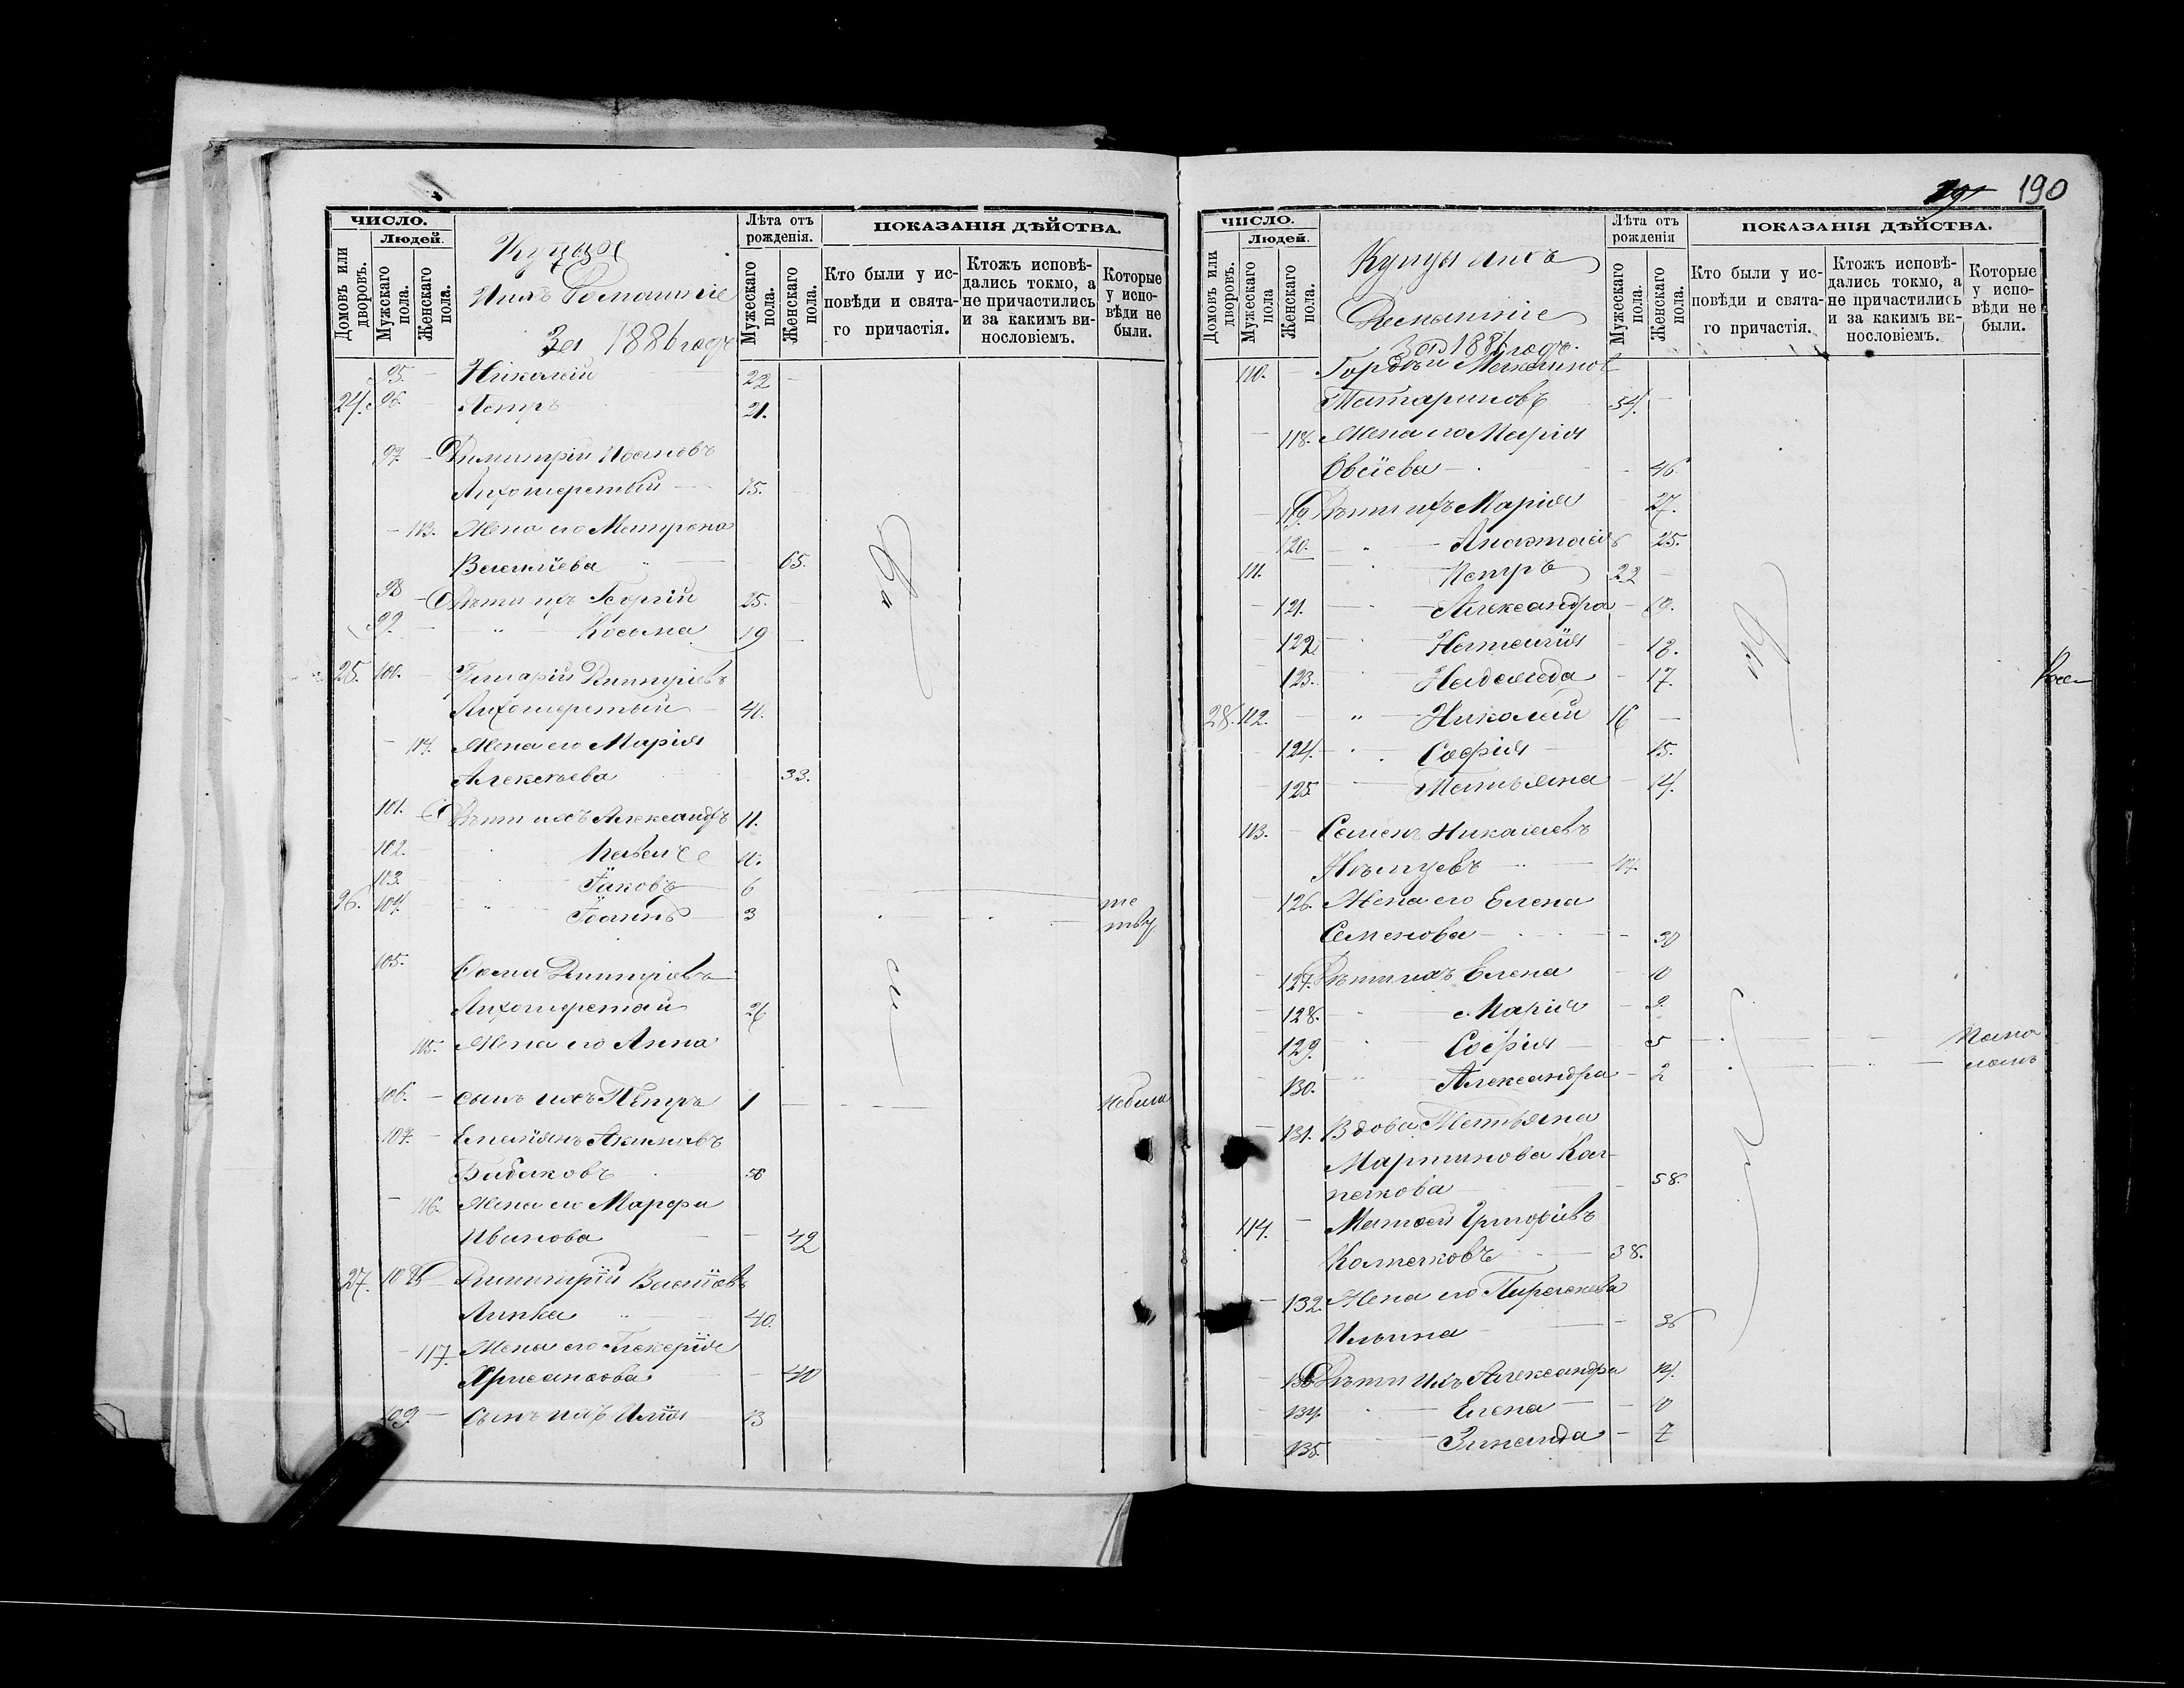 ЧИСЛО.
Домовъ или дворовъ.
Людей.
Мужескаго пола.
Женскаго пола.
Купцы
ихъ Домашніе
За 1886 годъ
Лѣта отъ рожденія.
Мужескаго пола.
Женскаго пола.
ПОКАЗАНІЯ ДѢЙСТВА.
Кто были у исповѣди и святаго причастія.
Ктожъ исповѣдались токмо, а не причастились и за какимъ винословіемъ.
Которые у исповѣди не были.
95. Николай 22
24. 96. Петръ 21.
97. Димитрій Ивановъ
Лихошерстый 75.
113. Жена его Матрона
Василіева 65.
98 Дѣти ихъ Георгій 25.
99. Косьма 19
25. 100. Димитріевъ
Лихошерстый 41.
114. Жена его Марія
Алексѣева 33.
101. Дѣти ихъ Александръ 11.
102. Павелъ
103. Іаковъ 6
26. 104. Іоаннъ 3
105. Ѳома Димитріевъ
Лихошерстый 26
115. Жена его Анна
106. сынъ ихъ Петръ 1
107. Емеліянъ Акимовъ
Бабаковъ 50
116. Жена его Марѳа
Иванова 42
27. 108 Димитрій
40.
117. Жена его Гликерія
Хрисанѳова 40
109. Сынъ ихъ Илія 13
190
ЧИСЛО.
Домовъ или дворовъ.
Людей.
Мужескаго пола
Женскаго пола.
Купцы ихъ
Домашніе
За 1886 годъ.
Лѣта отъ рожденія
Мужескаго пола.
Женскаго пола.
ПОКАЗАНІЯ ДѢЙСТВА.
Кто были у исповѣди и святаго причастія.
Ктожъ исповѣдались токмо, а не причастились и за какимъ винословіемъ.
Которые у исповѣди не были.
110. Гордѣй
Татариновъ 54.
118. Жена его Марія
46
119. Дѣти ихъ Марія 27.
120. Анастасія 25.
111. Петръ 22
121. Александра 19.
122 Наталія 18.
123. Надежда 17.
28. 112. Николай 16
124. Софія 15.
125. Татьяна 14.
113. Семенъ Николаевъ
Нѣмцевъ
126. Жена его Елена
Семенова 30
127. Дѣти ихъ Елена 10
128. Марія
129. Софія 5
130. Александра 2
131. Вдова Татьяна
Мартинова Кол-
пакова 58.
114. Матвѣй Григоріевъ
38.
132. Жена его Параскева
Ильина 36
133 Дѣти ихъ Александра
134. Елена 10
135. Зинаида 7